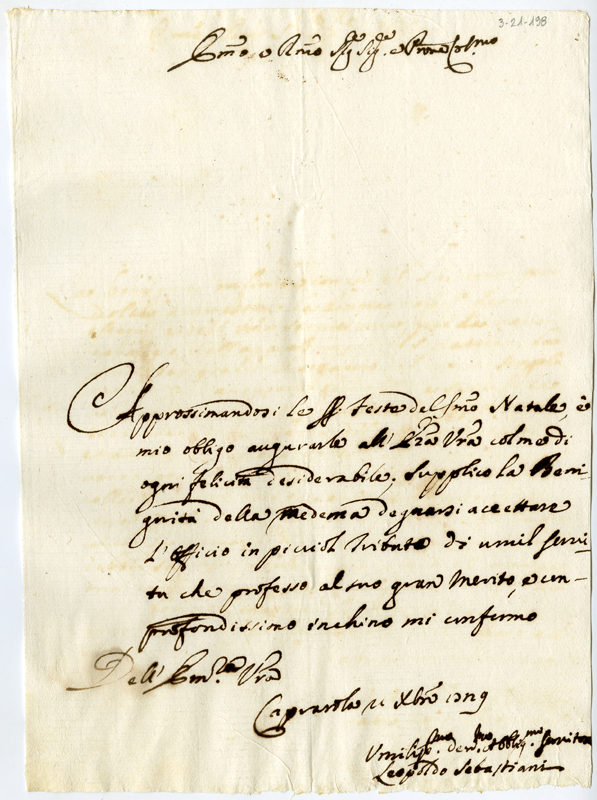 3-21-198
Emo e Rmo Sig Sig. e Prone Colmo
Approssimandosi le SS. Feste del Smo Natale, è
mio obligo augurarle all' Emza Vra colme di
ogni felicità desiderabile; supplico la Beni-
gnità della medema degnarsi accettare
l'officio in picciol tributo di umil servi-
tù che professo al suo gran merito, e con-
profondissimo inchino mi confermo
Dell' Em.za Vra
Caprarola 11 Xbre
Umiliss.mo dev.mo Obblig.mo servitore
Leopoldo Sebastiani